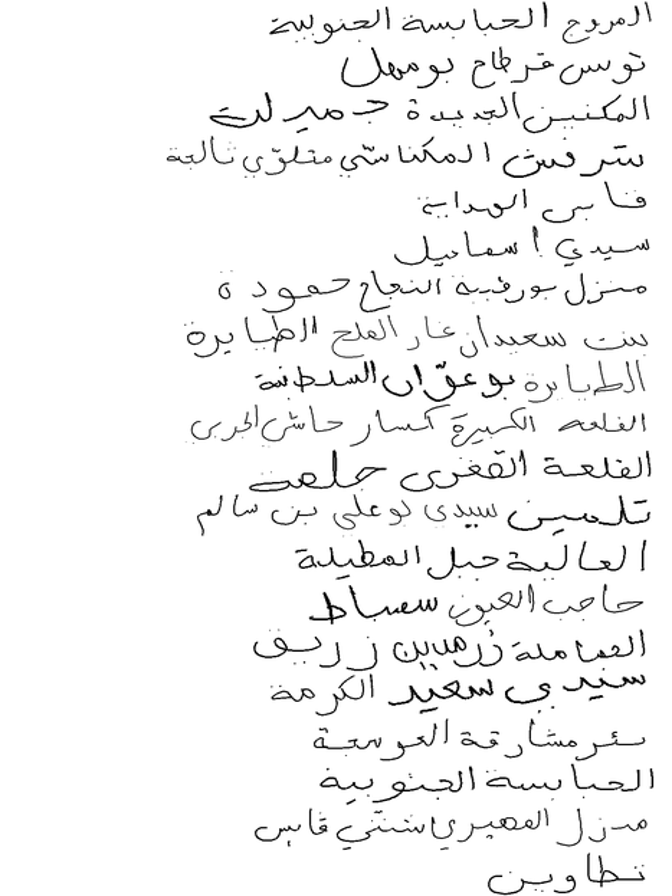 المروج الحبابسة الجنوبية
تونس قرطاج بومهل
المكنين الجديدة جميرلت
شرفش المكناسي متلوّي ثالجة
قابس الهداية
سيدي اسماعيل
منزل بورقيبة النجاح حمودة
بنت سعيدان غار الملح الطبايرة
الطبايرة بوعقّان السلطانية
القلعة الكبيرة كسار حاشي الجربي
القلعة الصغرى جلمة
تلمين سيدي بوعلي بن سالم
العالية جبل المطيلة
حاجب العيون سمباط
العمامله زرمدين زريق
سيدي سعيد الكرمة
بئر مشارقة العوسجة
الحبابسة الجنوبية
منزل المهيري شنني قابس
تطاوين